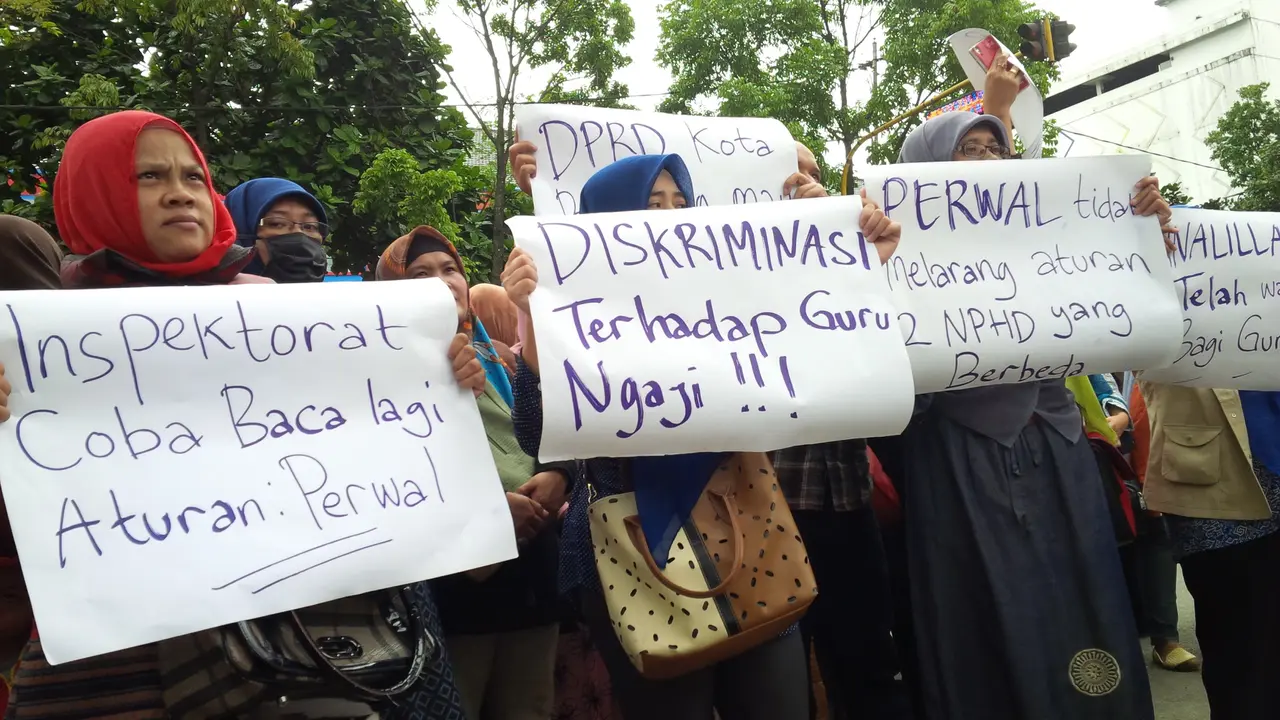 Inspektorat
Coba Baca lagi
Aturan: Perwal
DPRD Kota
DISKRIMINASI
Terhadap Guru
Ngaji !!!
PERWAL
Melarang aturan
2 NPHD yang
Berbeda
Telah
Bagi